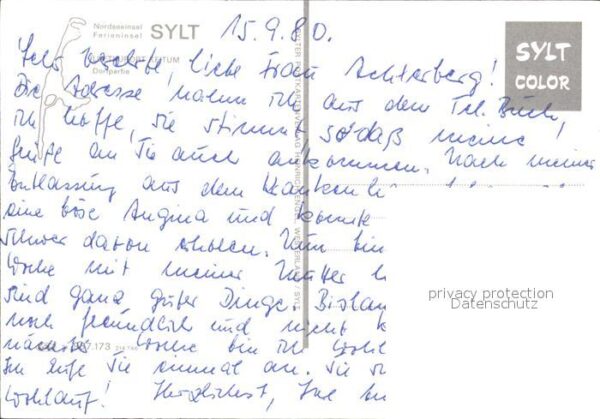 Nordseeinsel
Ferieninsel SYLT
15.9.80.
SYLT
COLOR
KEITUM
Dorfpartie
Sehr verehrte, liebe Frau Achterberg!
Die Adresse nahm ich aus dem Tel. Buch,
ich hoffe, sie stimmt, sodaß meine
Grüße an Sie auch ankommen. Nach meiner
Entlassung aus dem Kranken
eine böse Angina und konnte
schwer davon erholen. Nun bin
Woche mit meiner Mutter h
sind ganz guter Dinge. Bislang
noch freundlich und nicht k
nächste Woche bin ich wohl
Ich rufe Sie einmal an.
Wohlauf! Herzlichst, Ihre
privacy protection
Datenschutz